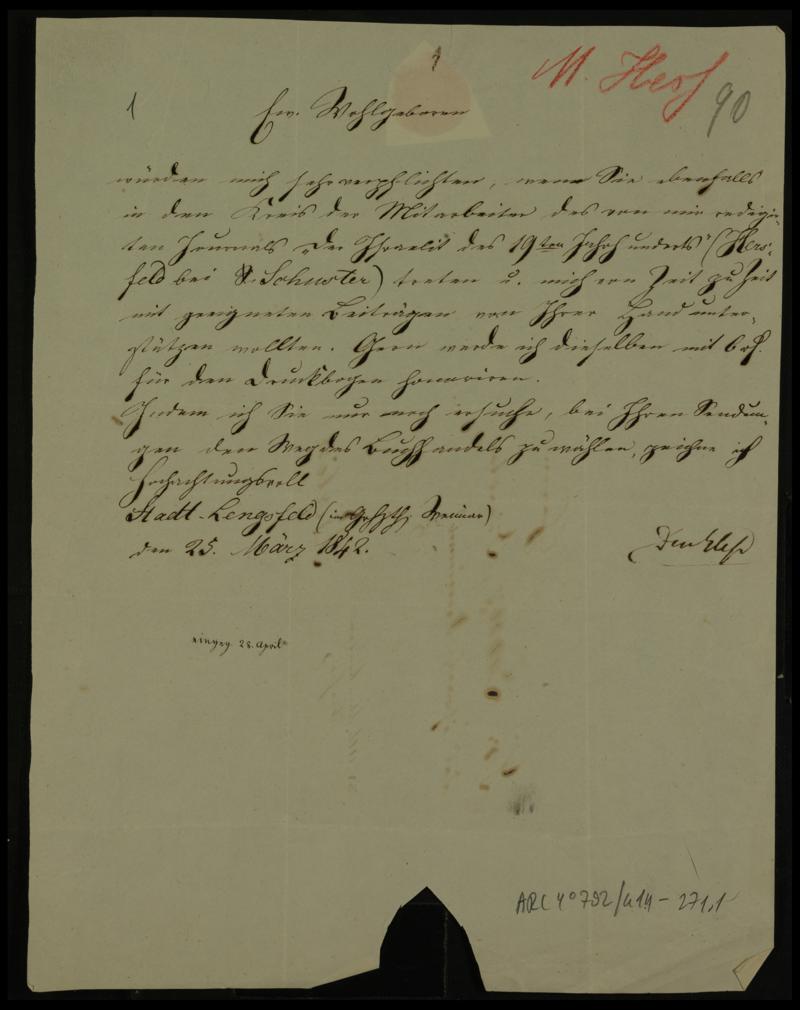 M. Heß
90
1
Ew. Wohlgeboren
würden mich sehr verpflichten, wenn Sie ebenfalls
in den Kreis der Mitarbeiter des von mir redigir-
ten Journals „Der Israelit des 19ten Jahrhunderts" (Hers-
feld bei Schuster) treten u. mich von Zeit zu Zeit
mit geeigneten Beiträgen von Ihrer Hand unter-
stützen wollten. Gern werde ich dieselben mit 6 rℓ.
für den Druckbogen honoriren.
Indem ich Sie nur noch ersuche, bei Ihren Sendun-
gen den Weg des Buchhandels zu wählen, zeichne ich
Hochachtungsvoll
Stadt-Lengsfeld (im Weimar)
den 25. März 1842.
eingeg. 28. April
ARC 4° 792/A14-271,1